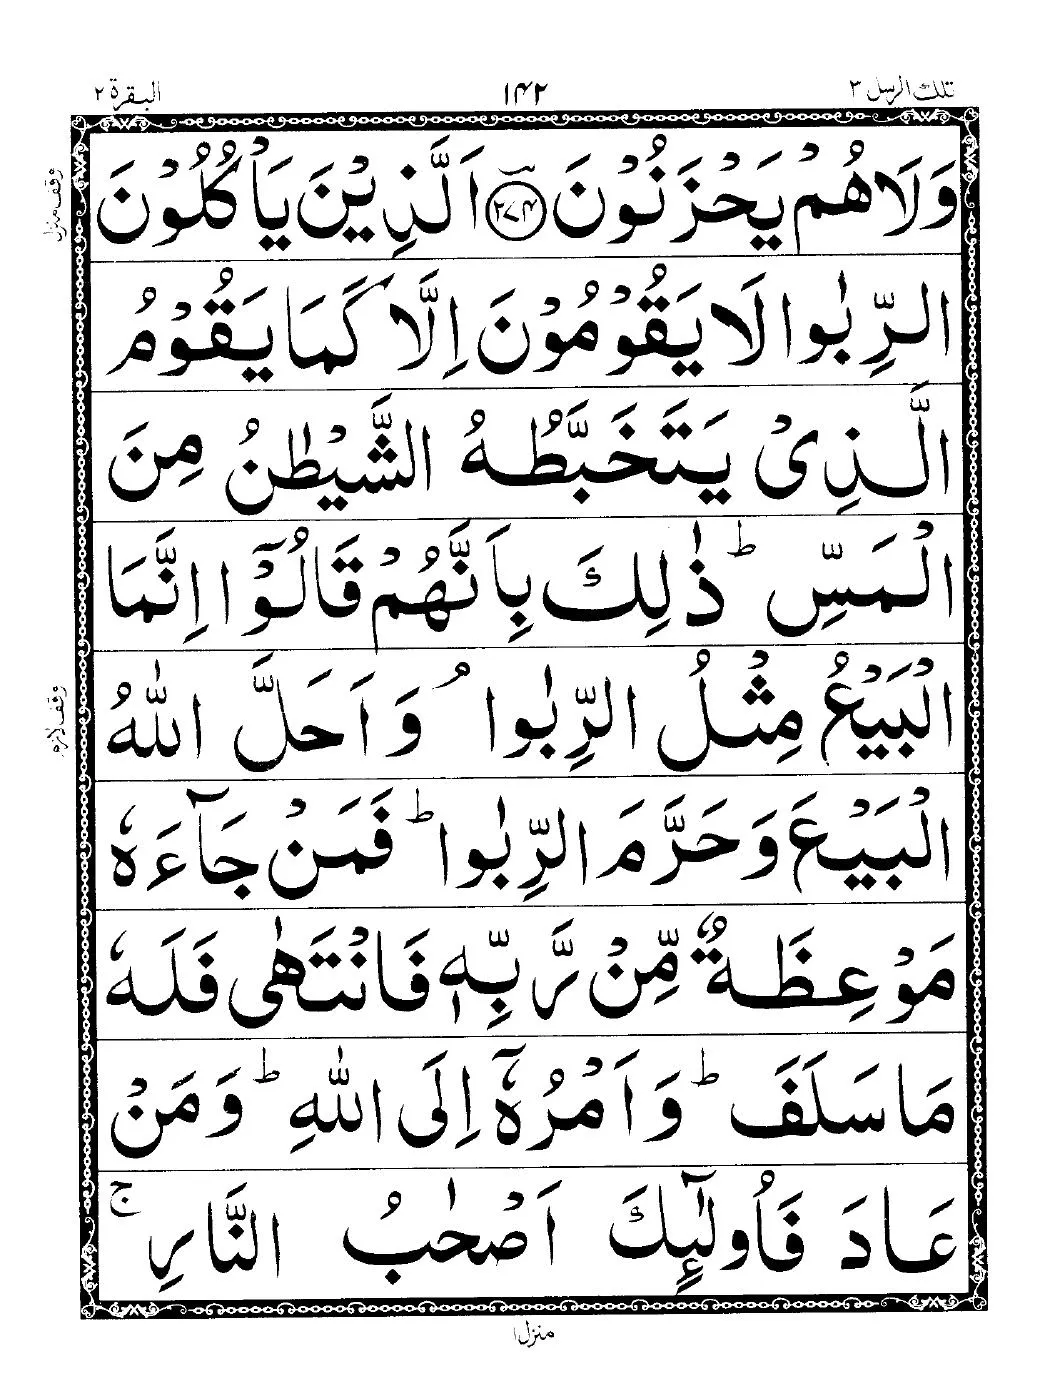 تلك الرسل ٣
١٤٢
البقرة ٢
وَلَا هُمْ يَحْزَنُوْنَ ﴿٢٧٤﴾ اَلَّذِيْنَ يَاْكُلُوْنَ
وقف منزل
الرِّبٰوا لَا يَقُوْمُوْنَ اِلَّا كَمَا يَقُوْمُ
الَّذِىْ يَتَخَبَّطُهُ الشَّيْطٰنُ مِنَ
الْمَسِّ ؕ ذٰلِكَ بِاَنَّهُمْ قَالُوْٓا اِنَّمَا
الْبَيْعُ مِثْلُ الرِّبٰوا ۘ وَاَحَلَّ اللّٰهُ
وقف لازم
الْبَيْعَ وَحَرَّمَ الرِّبٰوا ؕ فَمَنْ جَآءَهٗ
مَوْعِظَةٌ مِّنْ رَّبِّهٖ فَانْتَهٰى فَلَهٗ
مَا سَلَفَ ؕ وَاَمْرُهٗٓ اِلَى اللّٰهِ ؕ وَمَنْ
عَادَ فَاُولٰٓئِكَ اَصْحٰبُ النَّارِ ۚ
منزل ١